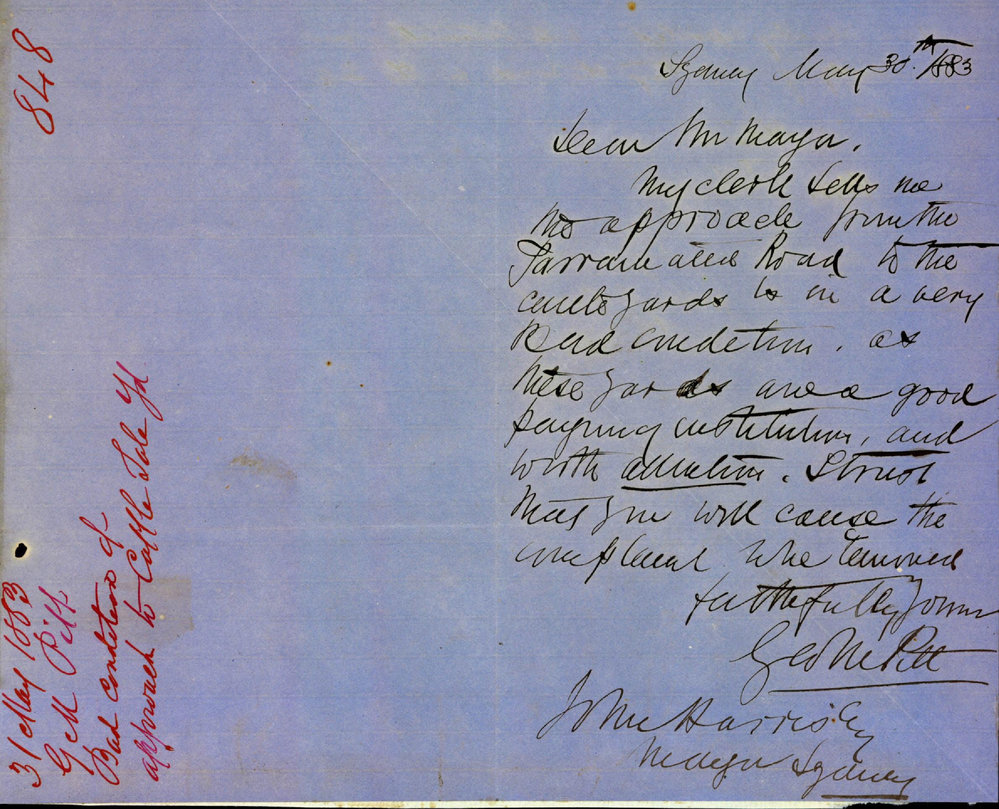 848
31 May 1883
G M Pitt
Bad condition of
approach to Cattle Sale Yd
Sydney May 30th. 1883
Dear Mr Mayor.
My clerk tells me
the approach from the
Parramatta Road to the
cattle yards is in a very
Bad condition. as
these yards are a good
paying institution, and
worth attention. I trust
that you will cause the
complaint to be removed
faithfully yours
Geo M Pitt
John Harris Esq
Mayor Sydney